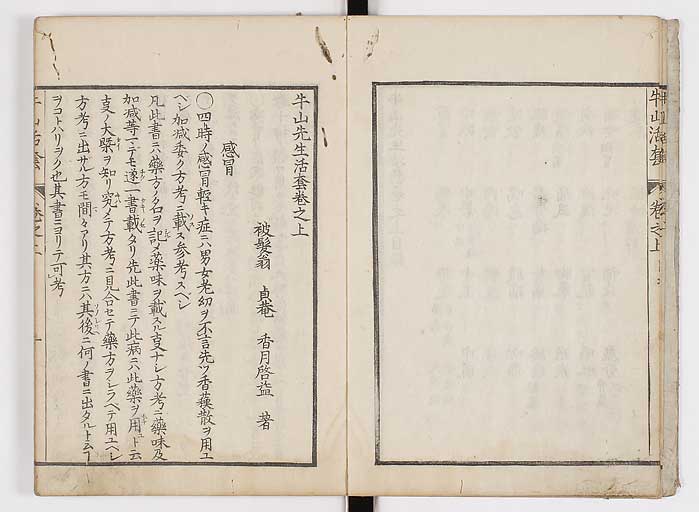 牛山活套 卷之上
牛山先生活套卷之上
被髮翁 貞菴 香月啓益 著
感冒
○四時ノ感冒輕キ症ニハ男女老幼ヲ不言先ツ香蘓散ヲ用ユ
ヘシ加減委ク方考ニ載ス參考スヘシ
凡此書ニハ藥方ノ名ヲ記〆藥味ヲ載スル叓ナシ方考ニ藥味及
加減等一〻テモ遂一書載タリ先此書ニテ此病ニハ此藥ヲ用ユト云
叓ノ大槩ヲ知リ究メテ方考ニ見合セテ藥方ヲシラヘテ用ユヘシ
方考ニ出サル方モ間々アリ其方ニハ其後ニ何ノ書ニ出タルト云フ
ヲコトハリヲク也其書ニヨリテ可考
牛山活套 卷之上 一